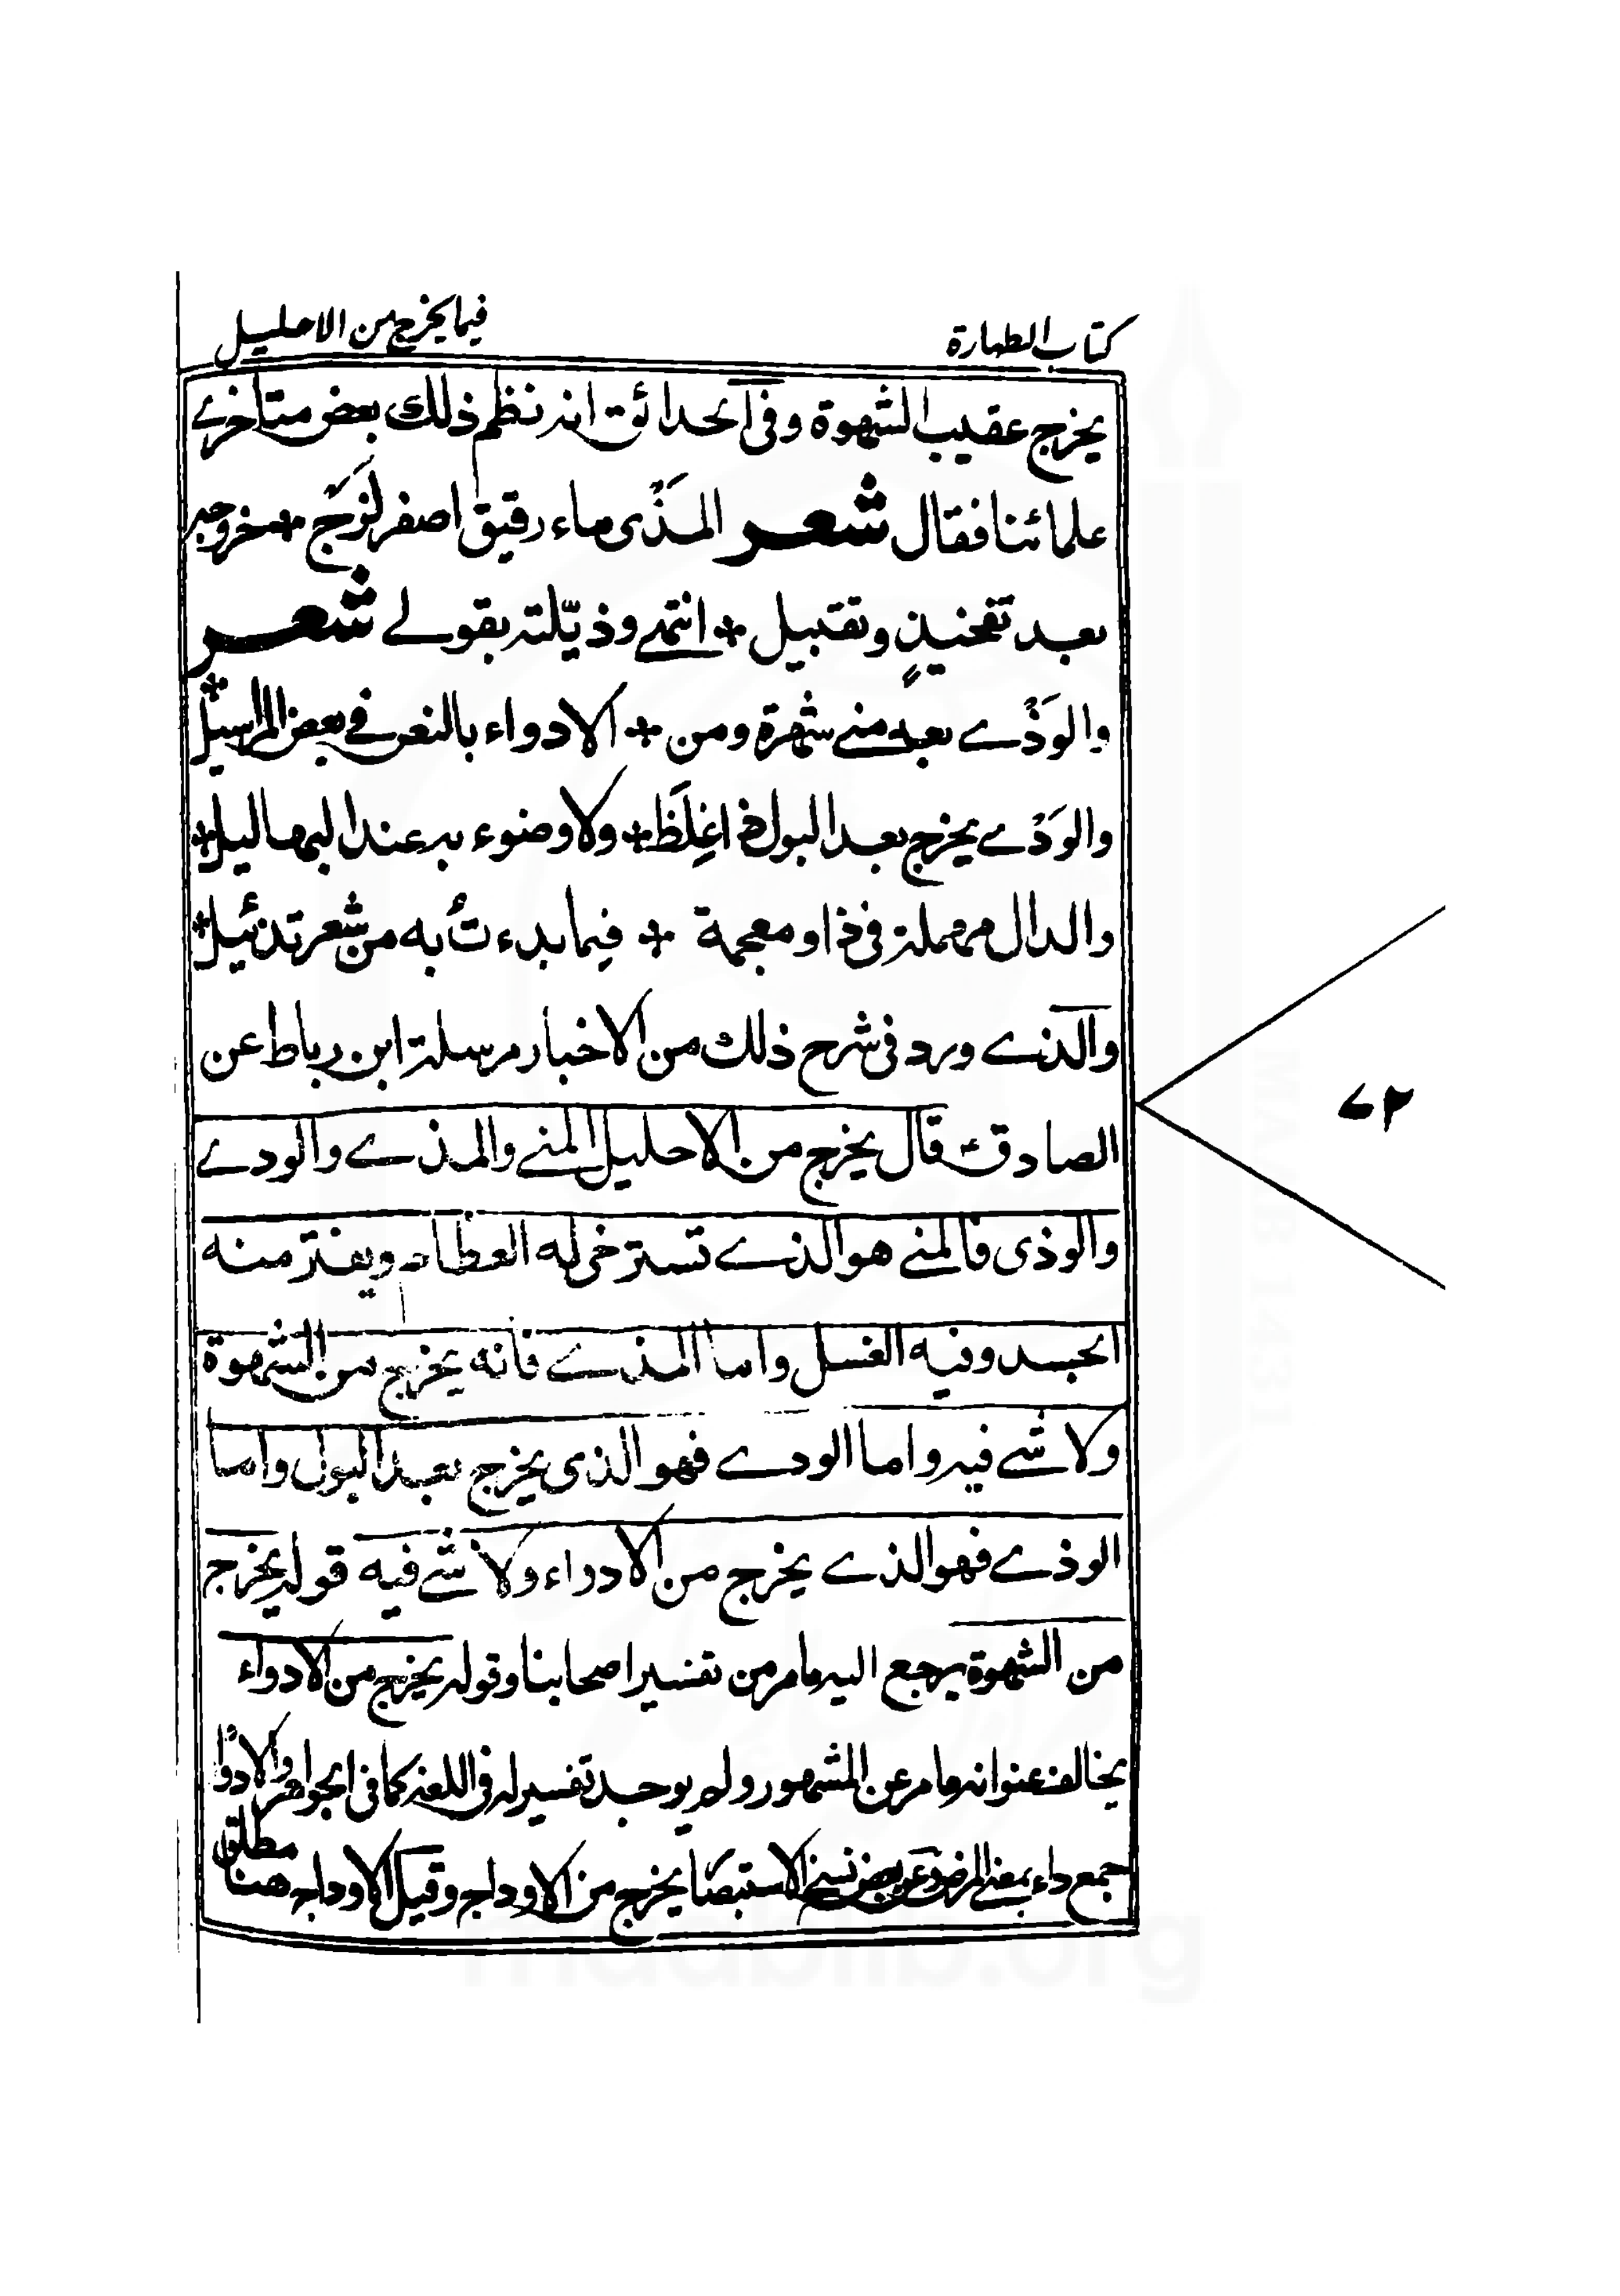 كتاب الطهارة
فيما يخرج من الاحليل
يخرج عقيب الشهوة وفى الحدائق انه نظم ذلك بعض متاخرے
علمائنا فقال شعر المَذْى ماء رقيق اصفر لَزِج + خروجه
بعد تفخيذٍ وتقبيل + انتهے وذيّلته بقولے شعر
والوَذْے بعيد منے شهرة ومن + الادواء بالنص فے بعض المراسيل +
والوَدْے يخرج بعد البول اذ اغلَظَ + ولا وضوء به عند البهاليل +
والدال مهملة فى ذا او معجمة + فيما بدءتُ به من شعر تذئيل +
والذے ورد فى شرح ذلك من الاخبار مرسلة ابن رباط عن
الصادق ع قال يخرج من الاحليل المنے والمذے والودے
والوذى فالمنے هو الذے تسترخى له العظام ويفتر منه
الجسد وفيه الغسل واما المذے فانه يخرج من الشهوة
ولا شے فيه واما الودے فهو الذى يخرج بعد البول واما
الوذے فهو الذے يخرج من الادواء ولا شے فيه قوله يخرج
من الشهوة يرجع اليه ما مر من تفسير اصحابنا وقوله يخرج من الادواء
يخالف عنوانه ما مر عن المشهور ولم يوجد تفسير له فى اللغة كما فى الجواهر والادوا
جمع داء بمعنے المرض وعن بعض نسخ الاستبصا يخرج من الاوداج وقيل الاوداج هنا مطلق
٦٢
maablib.org
MAAB 1431